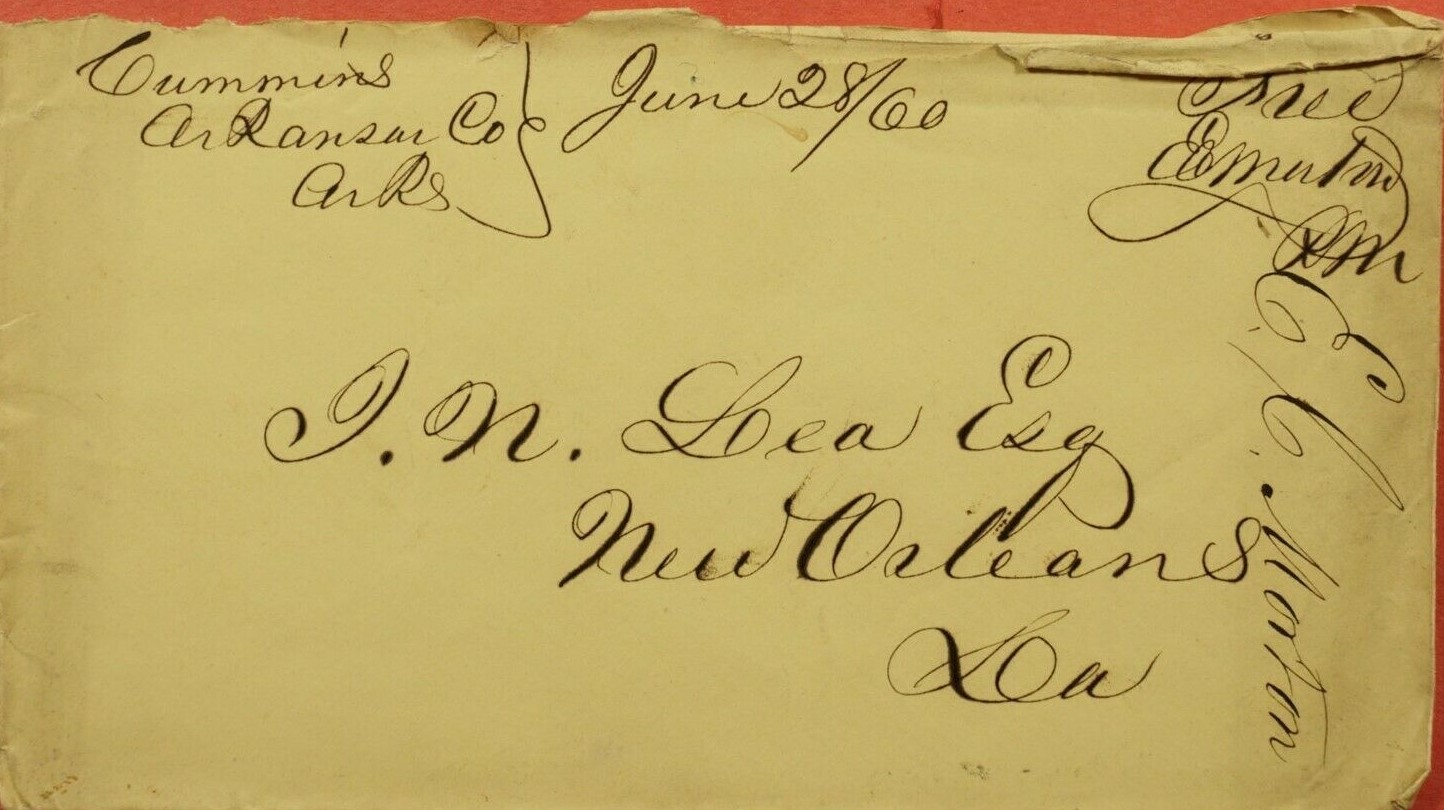 Cummins
Arkansas Co
Arks
June 28/60
Free
EC Morton
PM
J. N. Lea Esq
New Orleans
La
E. C. Morton